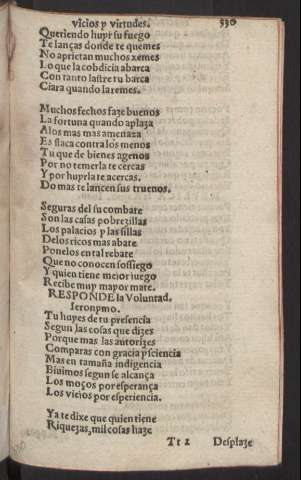 vicios y virtudes. 330
Queriendo huyr su fuego
Te lanças donde te quemes
No aprietan muchos xemes
Lo que la cobdicia abarca
Con tanto lastre tu barca
Ciara quando la remes.
Muchos fechos faze buenos
La fortuna quando aplaza
A los mas mas amenaza
Es flaca contra los menos
Tu que de bienes agenos
Por no temerla te cercas
Y por huyrla te acercas.
Do mas te lancen sus truenos.
Seguras del su combate
Son las casas pobrezillas
Los palacios y las sillas
De los ricos mas abate
Ponelos en tal rebate
Que no conocen sossiego
Y quien tiene mejor juego
Recibe muy mayor mate.
RESPONDE la Voluntad.
Ieronymo.
Tu huyes de tu presencia
Segun las cosas que dizes
Porque mas las autorizes
Comparas con gracia y sciencia
Mas en tamaña indigencia
Biuimos segun se alcança
Los moços por esperança
Los viejos por esperiencia.
Ya te dixe que quien tiene
Riquezas, mil cosas haze
Tt 2 Desplaze